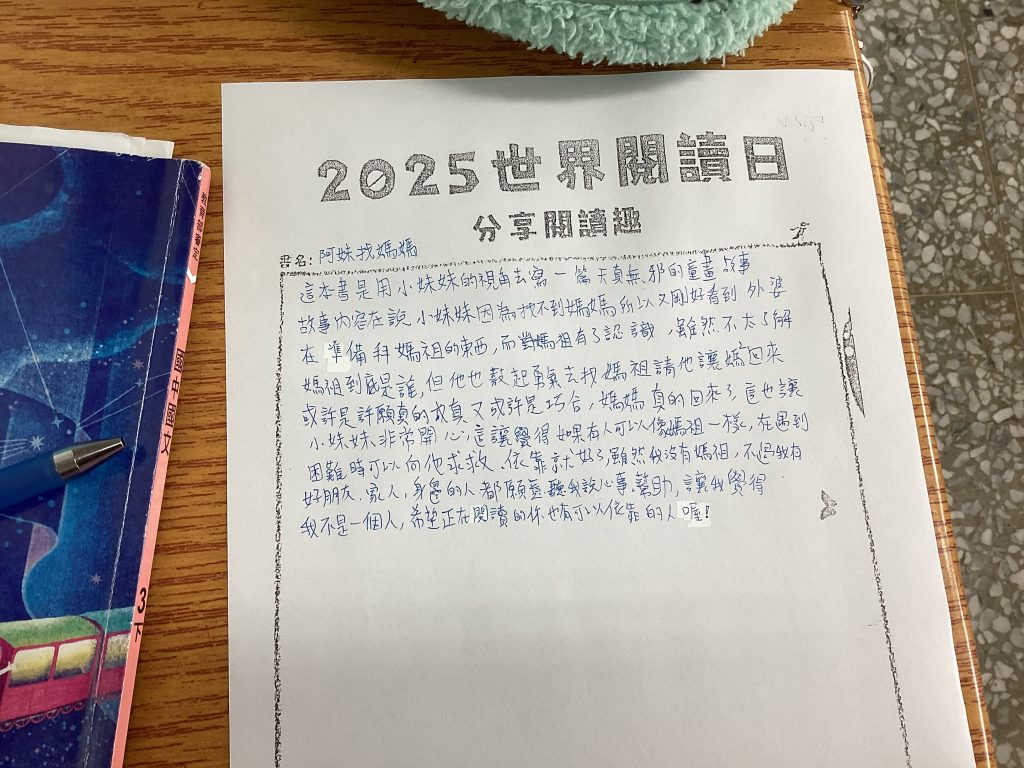 2025世界閱讀日
分享閱讀趣
書名：阿妹找媽媽
這本書是用小妹妹的視角去寫一篇天真無邪的童畫故事
故事內容在說小妹妹因為找不到媽媽所以又剛好看到外婆
在準備拜媽祖的東西，而對媽祖有了認識，雖然不太了解
媽祖到底是誰，但他也鼓起勇氣去找媽祖請他讓媽媽回來
或許是許願真的成真又或許是巧合，媽媽真的回來了，這也讓
小妹妹非常開心，這讓覺得如果有人可以像媽祖一樣，在遇到
困難時可以向他求救、依靠就好了雖然我沒有媽祖，不過我有
好朋友、家人，身邊的人都願意聽我說心事、幫助，讓我覺得
我不是一個人，希望正在閱讀的你也有可以依靠的人喔！
國中國文
3下